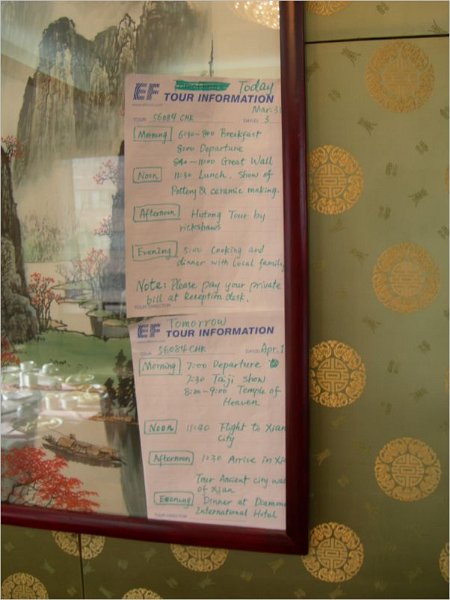 EF Today
TOUR INFORMATION
Mar. 31
TOUR S6084 CHK DATE: 3
Morning 6:30-8:00 Breakfast
8:00 Departure
-11:00 Great Wall
Noon 11:30 Lunch. Show of
Pottery & ceramic making.
Afternoon Hutong Tour by
rickshaws
Evening 5:00 Cooking and
dinner with local family
Note: Please pay your private
bill at Reception desk.
YOUR DIRECTOR
EF Tomorrow
TOUR INFORMATION
TOUR S6084 CHK DATE: Apr. 1
Morning 7:00 Departure
7:30 Taiji show
8:20-9:00 Temple of
Heaven
Noon 11:20 Flight to Xian
City
Afternoon 1:30 Arrive in Xi
Tour Ancient city wa
of Xian
Evening Dinner at
International Hotel
YOUR DIRECTOR